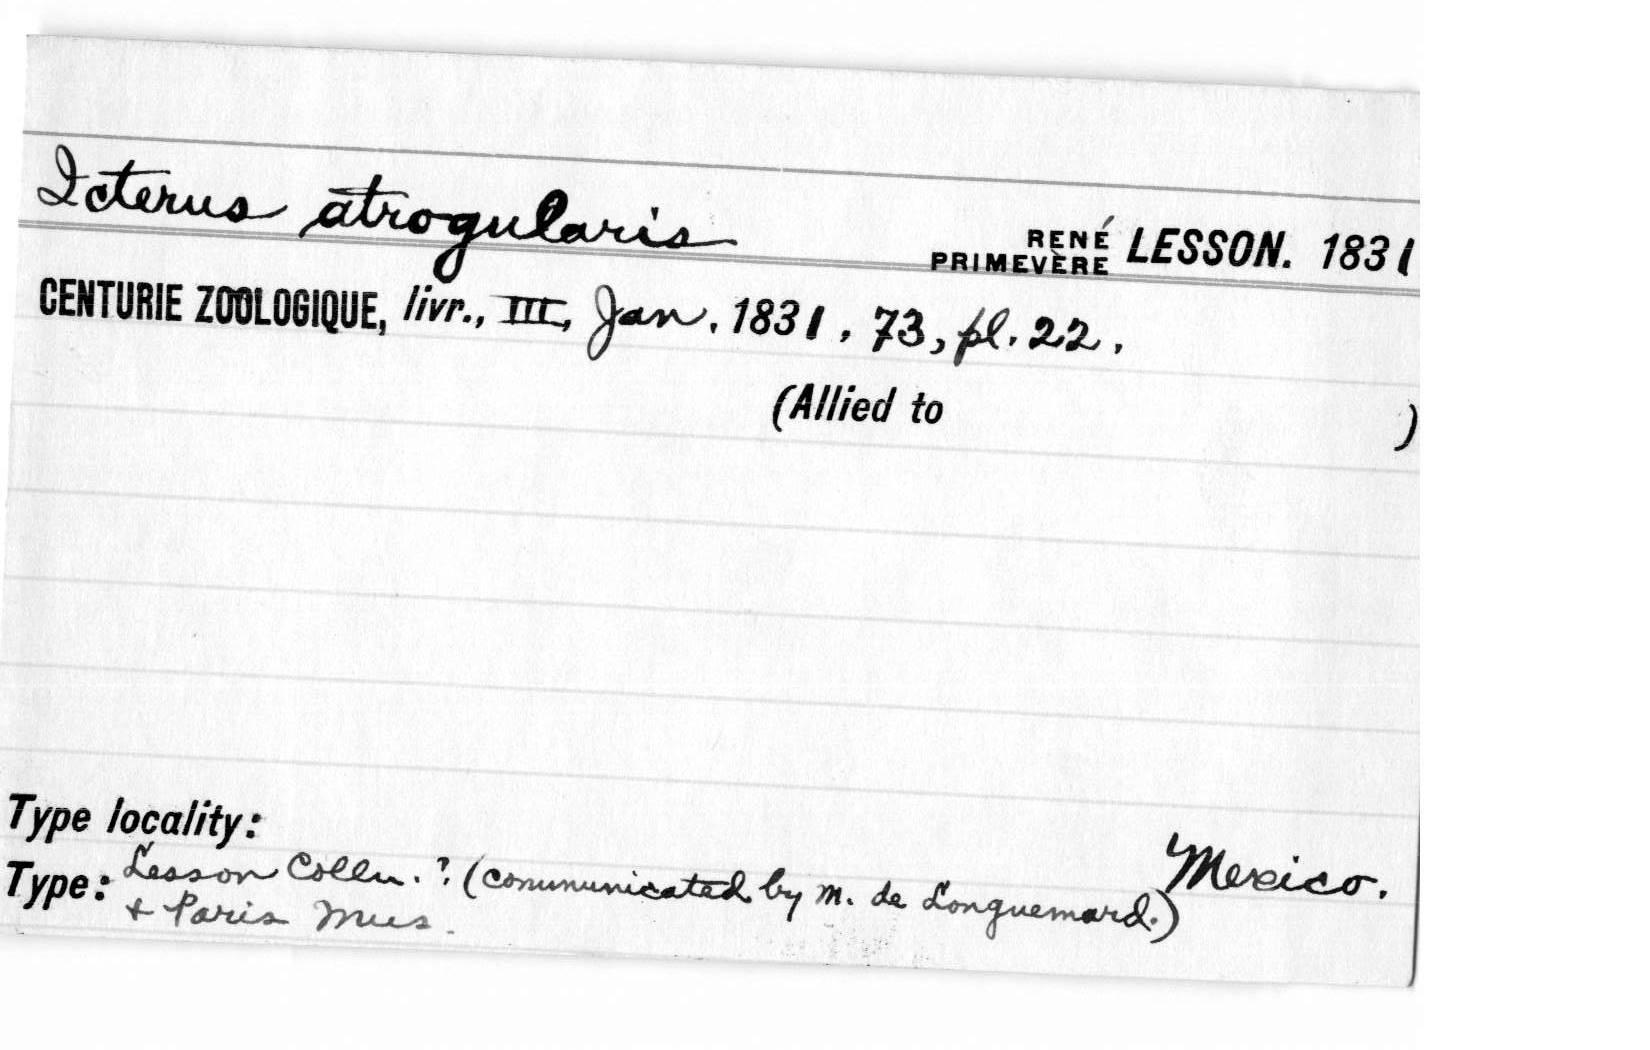 Icterus atrogularis RENÉ PRIMEVÈRE LESSON. 1831
CENTURIE ZOOLOGIQUE, livr., III, Jan. 1831. 73, pl. 22.
(Allied to )
Type locality: Mexico.
Type: Lesson Colln. ? (communicated by M. de Longuemard.)
+ Paris Mus.